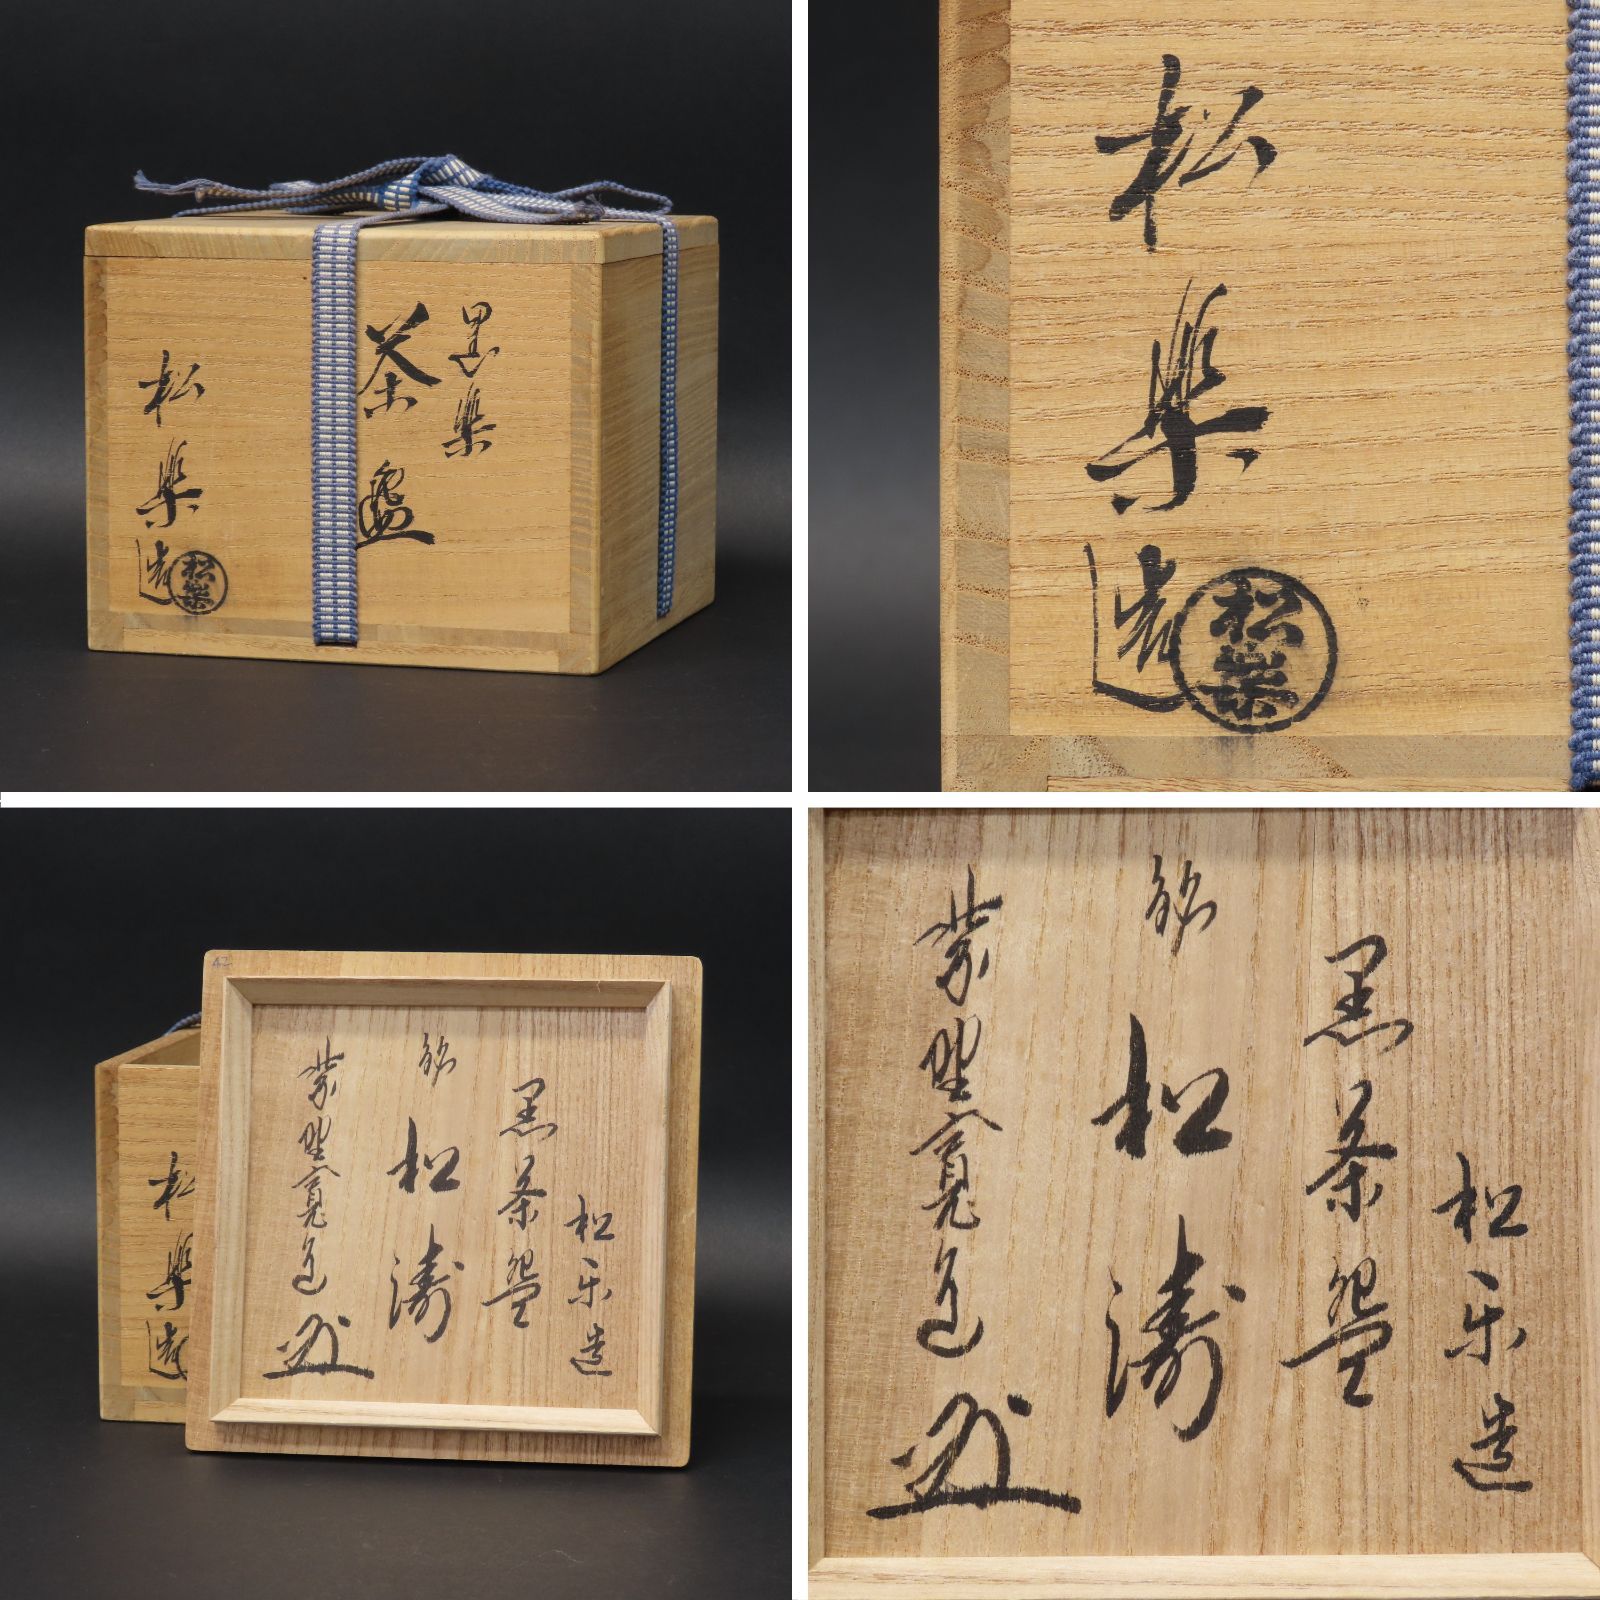 黒楽
茶盌
松楽造
松楽
松楽造
松楽
42
松楽造
黒茶盌
銘
松濤
紫野寛道
松楽造
松楽造
黒茶盌
銘
松濤
紫野寛道